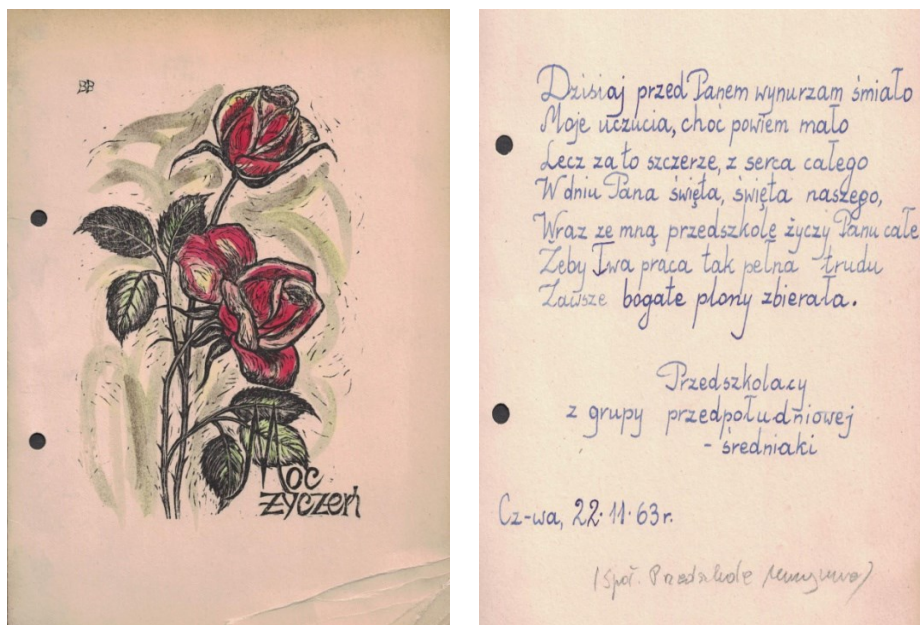 BB
Moc
życzeń
Dzisiaj przed Panem wynurzam śmiało
Moje uczucia, choć powiem mało
Lecz za to szczerze, z serca całego
W dniu Pana święta, święta naszego,
Wraz ze mną przedszkole życzy Panu całe
Żeby Twa praca tak pełna trudu
Zawsze bogate plony zbierała.
Przedszkolacy
z grupy przedpołudniowej
- średniaki
Cz-wa, 22. 11. 63 r.
(Społ. Przedszkole Muzyczne)